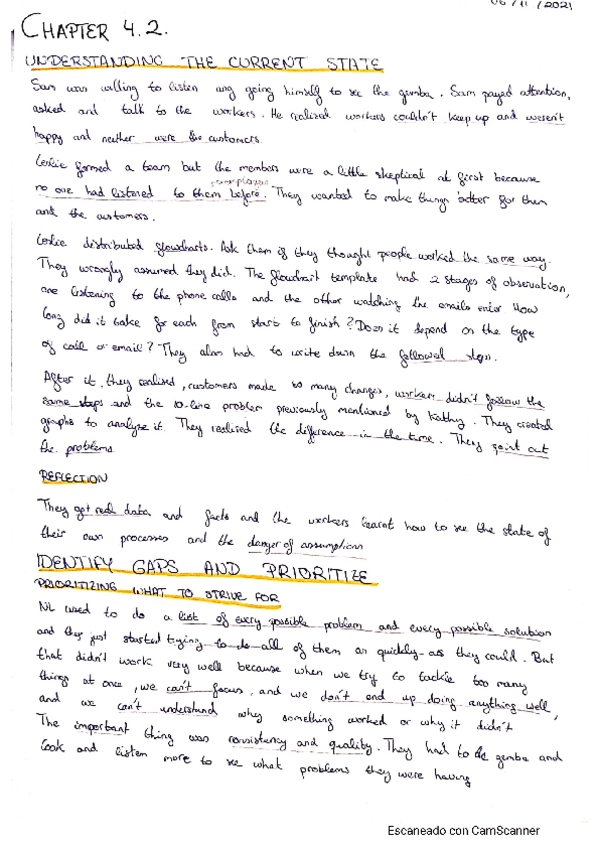 06/11/2021
CHAPTER 4.2.
UNDERSTANDING THE CURRENT STATE
Sam was willing to listen ang going himself to see the gemba. Sam payed attention,
asked and talk to the workers. He realized workers couldn't keep up and weren't
happy and neither were the customers.
Leslie formed a team but the members were a little skeptical at first because
no one had listened to them before. They wanted to make things better for them
and the customers.
Leslie distributed flowcharts. Ask them if they thought people worked the same way.
They wrongly assumed they did. The flowchart template had 2 stages of observation,
one listening to the phone calls and the other watching the emails enter. How
long did it take for each from start to finish? Does it depend on the type
of call or email? They also had to write down the followed steps.
After it, they realised, customers made so many changes, workers didn't follow the
same steps and the 10-line problem previously mentioned by Kathy. They created
graphs to analyze it. They realised the difference in the time. They point out
the problems
REFLECTION
They got real data and facts and the workers learnt how to see the state of
their own processes and the danger of assumptions
IDENTIFY GAPS AND PRIORITIZE
PRIORITIZING WHAT TO STRIVE FOR
NL used to do a list of every possible problem and every possible solution
and they just started trying to do all of them as quickly as they could. But
that didn't work very well because when we try to tackle too many
things at once, we can't focus, and we don't end up doing anything well,
and we can't understand why something worked or why it didn't
The important thing was consistency and quality. They had to gemba and
look and listen more to see what problems they were having
Escaneado con CamScanner